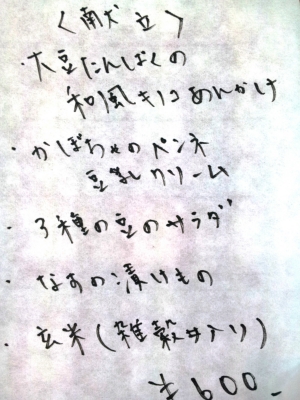 〈献立〉
・大豆たんぱくの
和風きのこあんかけ
・かぼちゃのペンネ
豆乳クリーム
・3種の豆のサラダ
・なすの漬けもの
・玄米(雑穀入り)
¥600-